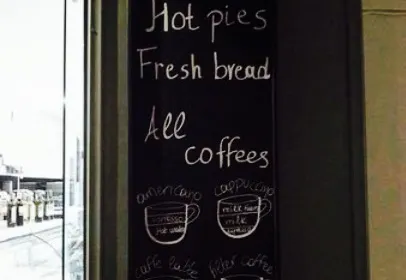 Hot pies
Fresh bread
All
coffees
americano cappuccino
espresso
hot water
milk foam
milk
caffe latte filter coffee